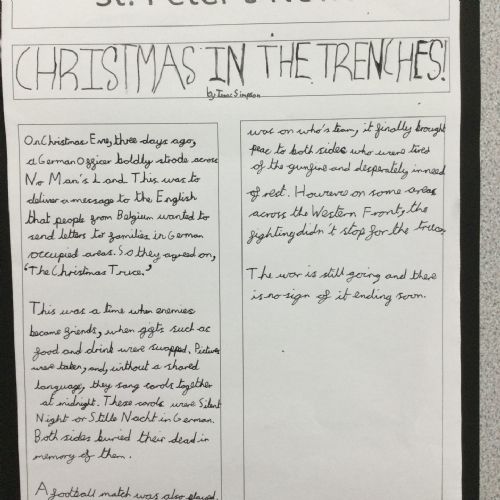 St. Peter's
CHRISTMAS IN THE TRENCHES!
by Isaac Simpson
On Christmas Eve, three days ago,
a German Officer boldly strode across
No Man's Land This was to
deliver a message to the English
that people from Belgium wanted to
send letters to families in German
occupied areas. So they agreed on,
'The Christmas Truce.'
This was a time when enemies
became friends, when gifts such as
food and drink were swapped. Pictures
were taken, and, without a shared
language, they sang carols together
at midnight. These carols were Silent
Night or Stille Nacht in German.
Both sides buried their dead in
memory of them.
A football match was also played.
was on who's team, it finally brought
peac to both sides who were tired
of the gunfire and desperately in need
of rest. However on some areas
across the Western Front, the
fighting didn't stop for the truce.
The war is still going and there
is no sign of it ending soon.